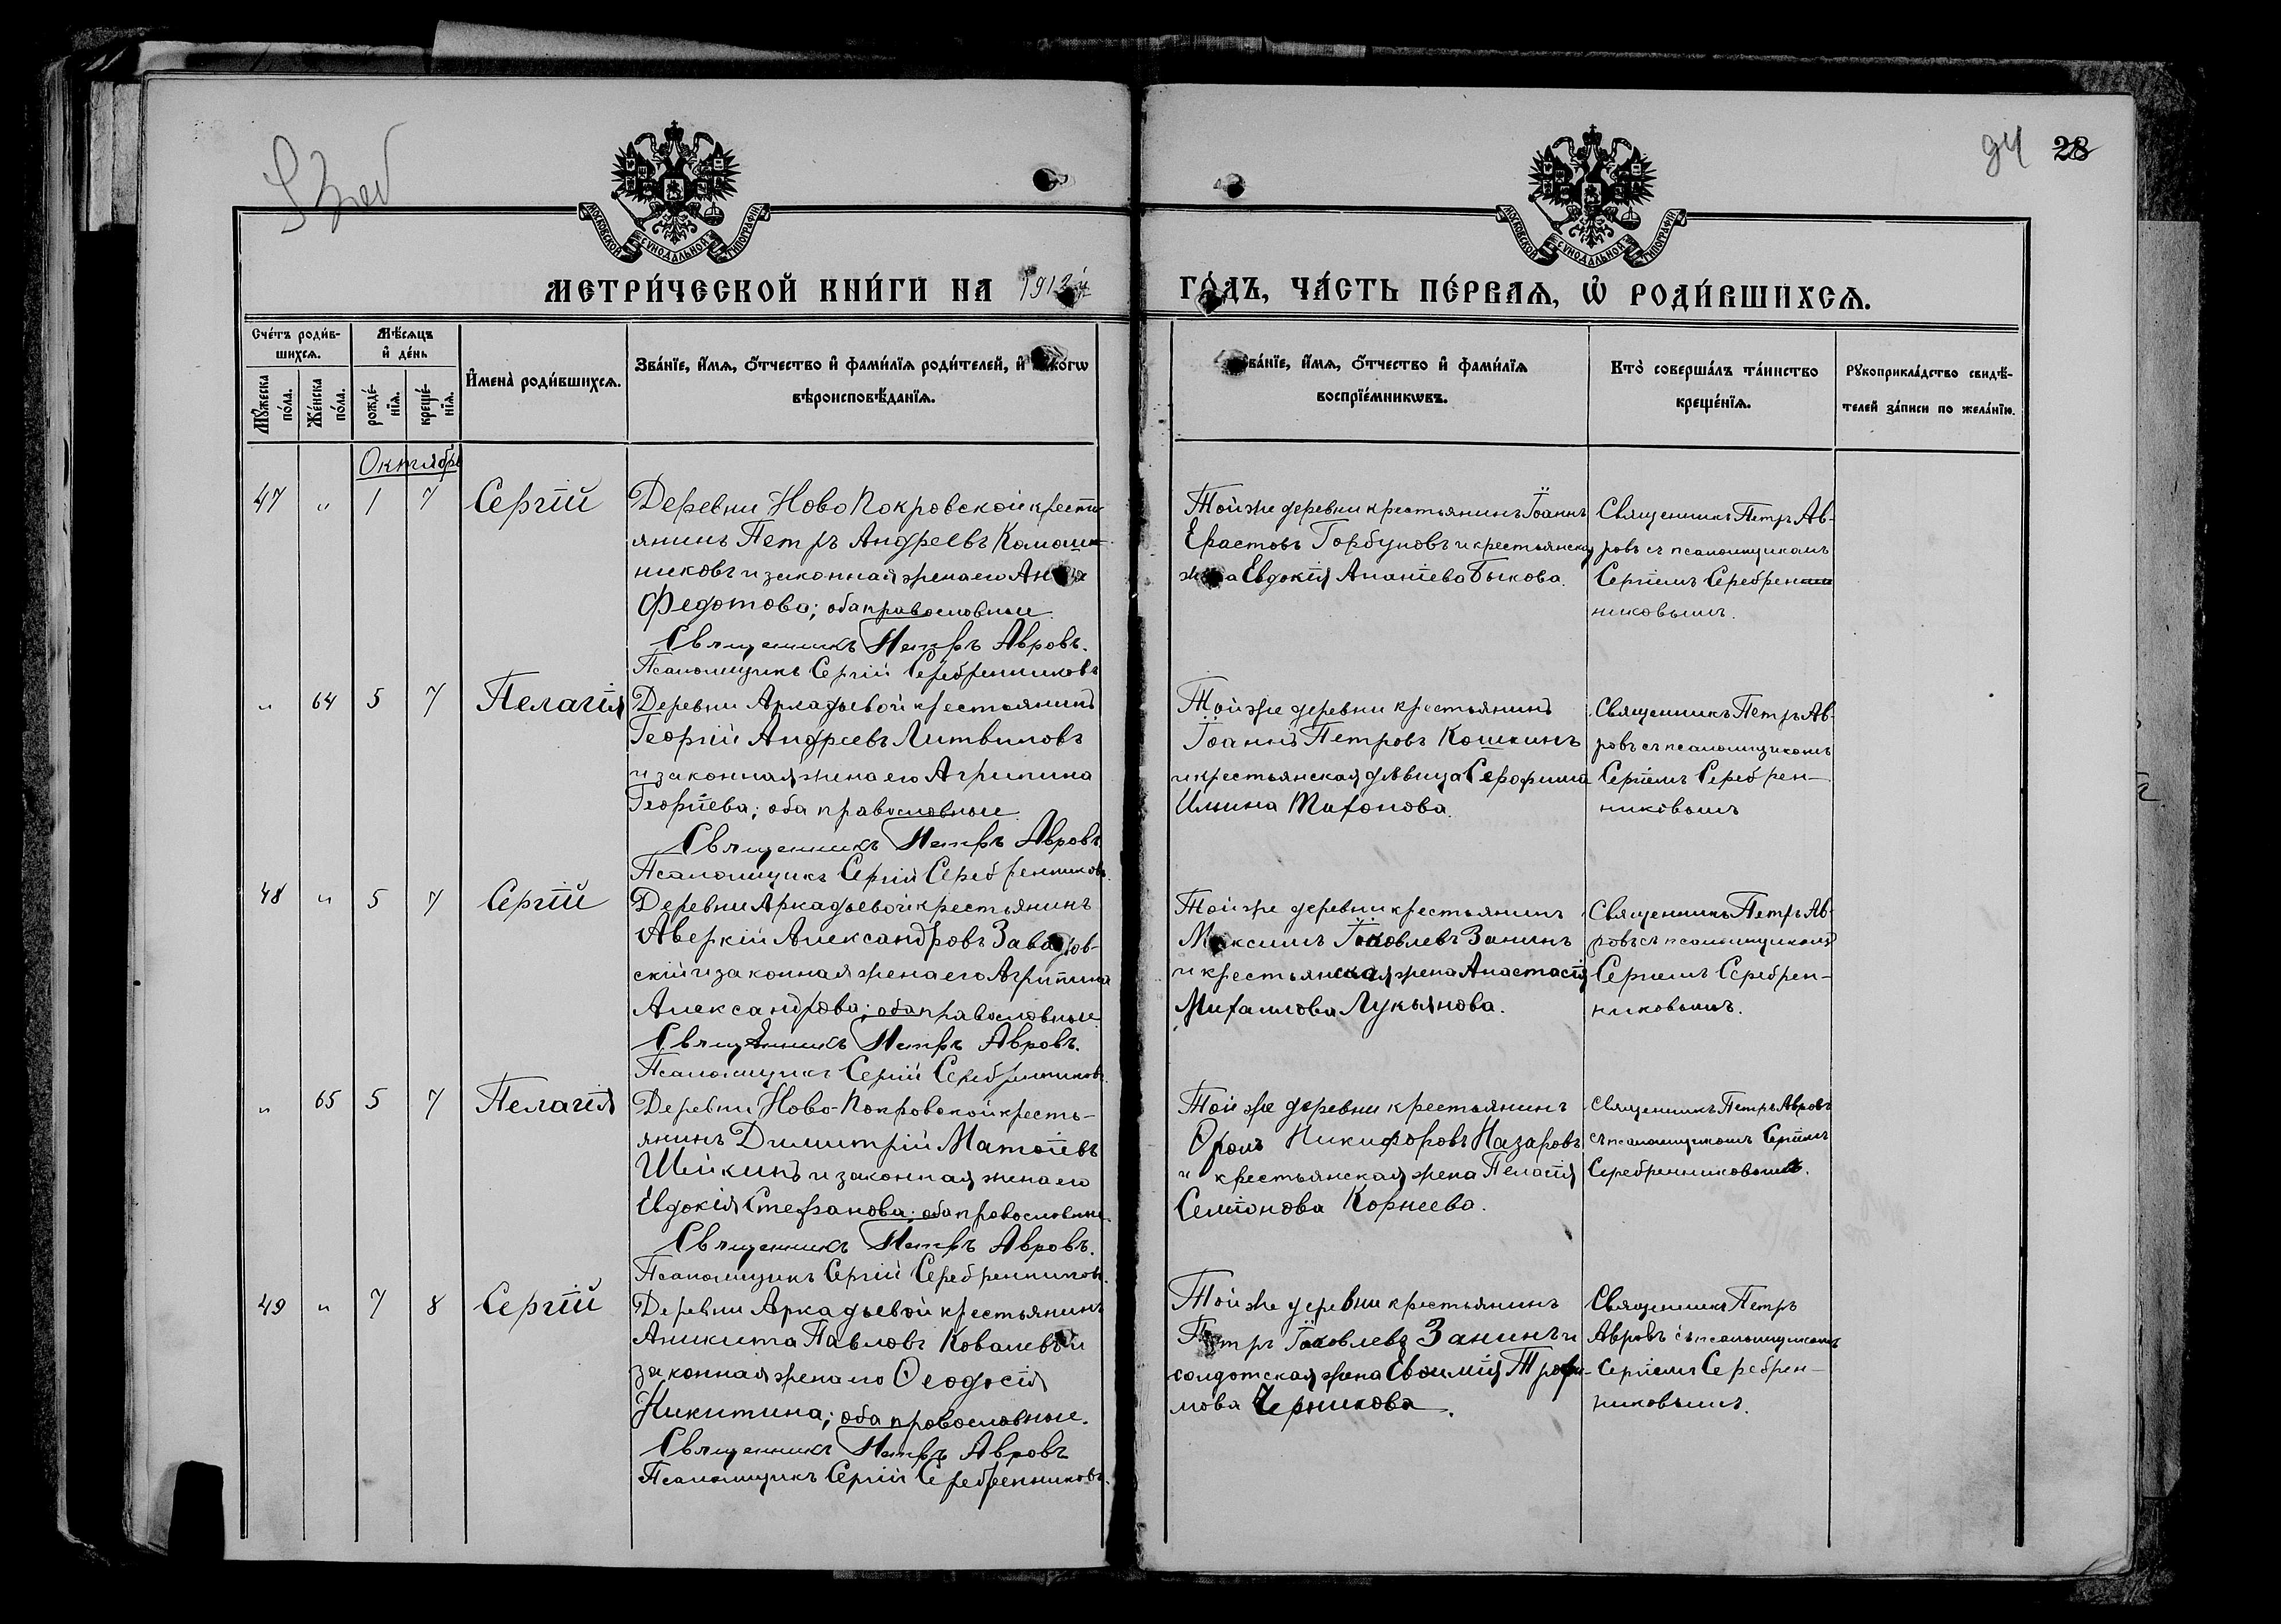 94 28
МОСКОВСКОЙ СѴНОДАЛЬНОЙ ТИПОГРАФІИ
МОСКОВСКОЙ СѴНОДАЛЬНОЙ ТИПОГРАФІИ
МЕТРИ́ЧЕСКОЙ КНИ́ГИ НА 1912 й
ГО́ДЪ, ЧА́СТЬ ПЕ́РВАѦ, Ѡ҆ РОДИ́ВШИХСѦ.
Сче́тъ роди́в-
шихсѧ.
Мꙋ́жеска по́ла.
Же́нска по́ла.
Мѣ́сѧцъ
и҆ де́нь
рожде́-
нїѧ.
креще́-
нїѧ.
И҆мена̀ роди́вшихсѧ.
Зва́нїе, и҆́мѧ, ѻ҆́тчество и҆ фами́лїѧ роди́телей, и҆ како́гѡ
вѣроисповѣ́данїѧ.
Зва́нїе, и҆́мѧ, ѻ҆́тчество и҆ фами́лїѧ
воспрїе́мникѡвъ.
Кто̀ соверша́лъ та́инство
креще́нїѧ.
Рꙋкоприкла́дство свидѣ́-
телей за́писи по жела́нїю.
Октябрь
47 " 1 7 Сергій
Деревни Ново Покровской кресть
янинъ Петръ Андреевъ Калаш-
никовъ и законная жена его Анна
Федотова; оба православные.
Священникъ Петръ Авровъ.
Псаломщикъ Сергій Серебренниковъ
Той же деревни крестьянинъ Іоаннъ
Ерастовъ Горбуновъ и крестьянская
жена Евдокія Ананіева Быкова.
Священникъ Петръ Ав-
ровъ съ псаломщикомъ
Сергіемъ Серебрен
никовымъ.
" 64 5 7 Пелагія
Деревни Аркадьевой крестьянинъ
Георгій Андреевъ Литвиновъ
и законная жена его Агрипина
Георгіева; оба православные.
Священникъ Петръ Авровъ
Псаломщикъ Сергій Серебренниковъ.
Той же деревни крестьянинъ
Іоаннъ Петровъ Кошкинъ
и крестьянская дѣвица Серофима
Ильина Тихонова.
Священникъ Петръ Ав-
ровъ съ псаломщикомъ
Сергіемъ Серебрен-
никовымъ
48 " 5 7 Сергій
Деревни Аркадьевой крестьянинъ
Аверкій Александровъ Завадов-
скій и законная жена его Агрипина
Александрова; оба православные.
Священникъ Петръ Авровъ.
Псаломщикъ Сергій Серебренниковъ.
Той же деревни крестьянинъ
Максимъ Іаковлевъ Занинъ
и крестьянская жена Анастасія
Михаилова Лукьянова.
Священникъ Петръ Ав-
ровъ съ псаломщикомъ
Сергіемъ Серебрен-
никовымъ.
" 65 5 7 Пелагія
Деревни Ново-Покровской кресть-
янинъ Димитрій Матѳіевъ
Шейкинъ и законная жена его
Евдокія Стефанова; оба православные
Священникъ Петръ Авровъ.
Псаломщикъ Сергій Серебренниковъ.
Той же деревни крестьянинъ
Ѳролъ Никифоровъ Назаровъ
и крестьянская жена Пелагія
Семіонова Корнеева.
Священникъ Петръ Авровъ
съ псаломщикомъ Сергіемъ
Серебренниковымъ.
49 " 7 8 Сергій
Деревни Аркадьевой крестьянинъ
Аникита Павловъ Ковалевъ и
законная жена его Ѳеодосія
Никитина; оба православные.
Священникъ Петръ Авровъ
Псаломщикъ Сергій Серебренниковъ.
Той же деревни крестьянинъ
Петръ Іаковлевъ Занинъ и
солдатская жена Евѳимія Трофи-
мова Черникова.
Священникъ Петръ
Авровъ съ псаломщикомъ
Сергіемъ Серебрен-
никовымъ.